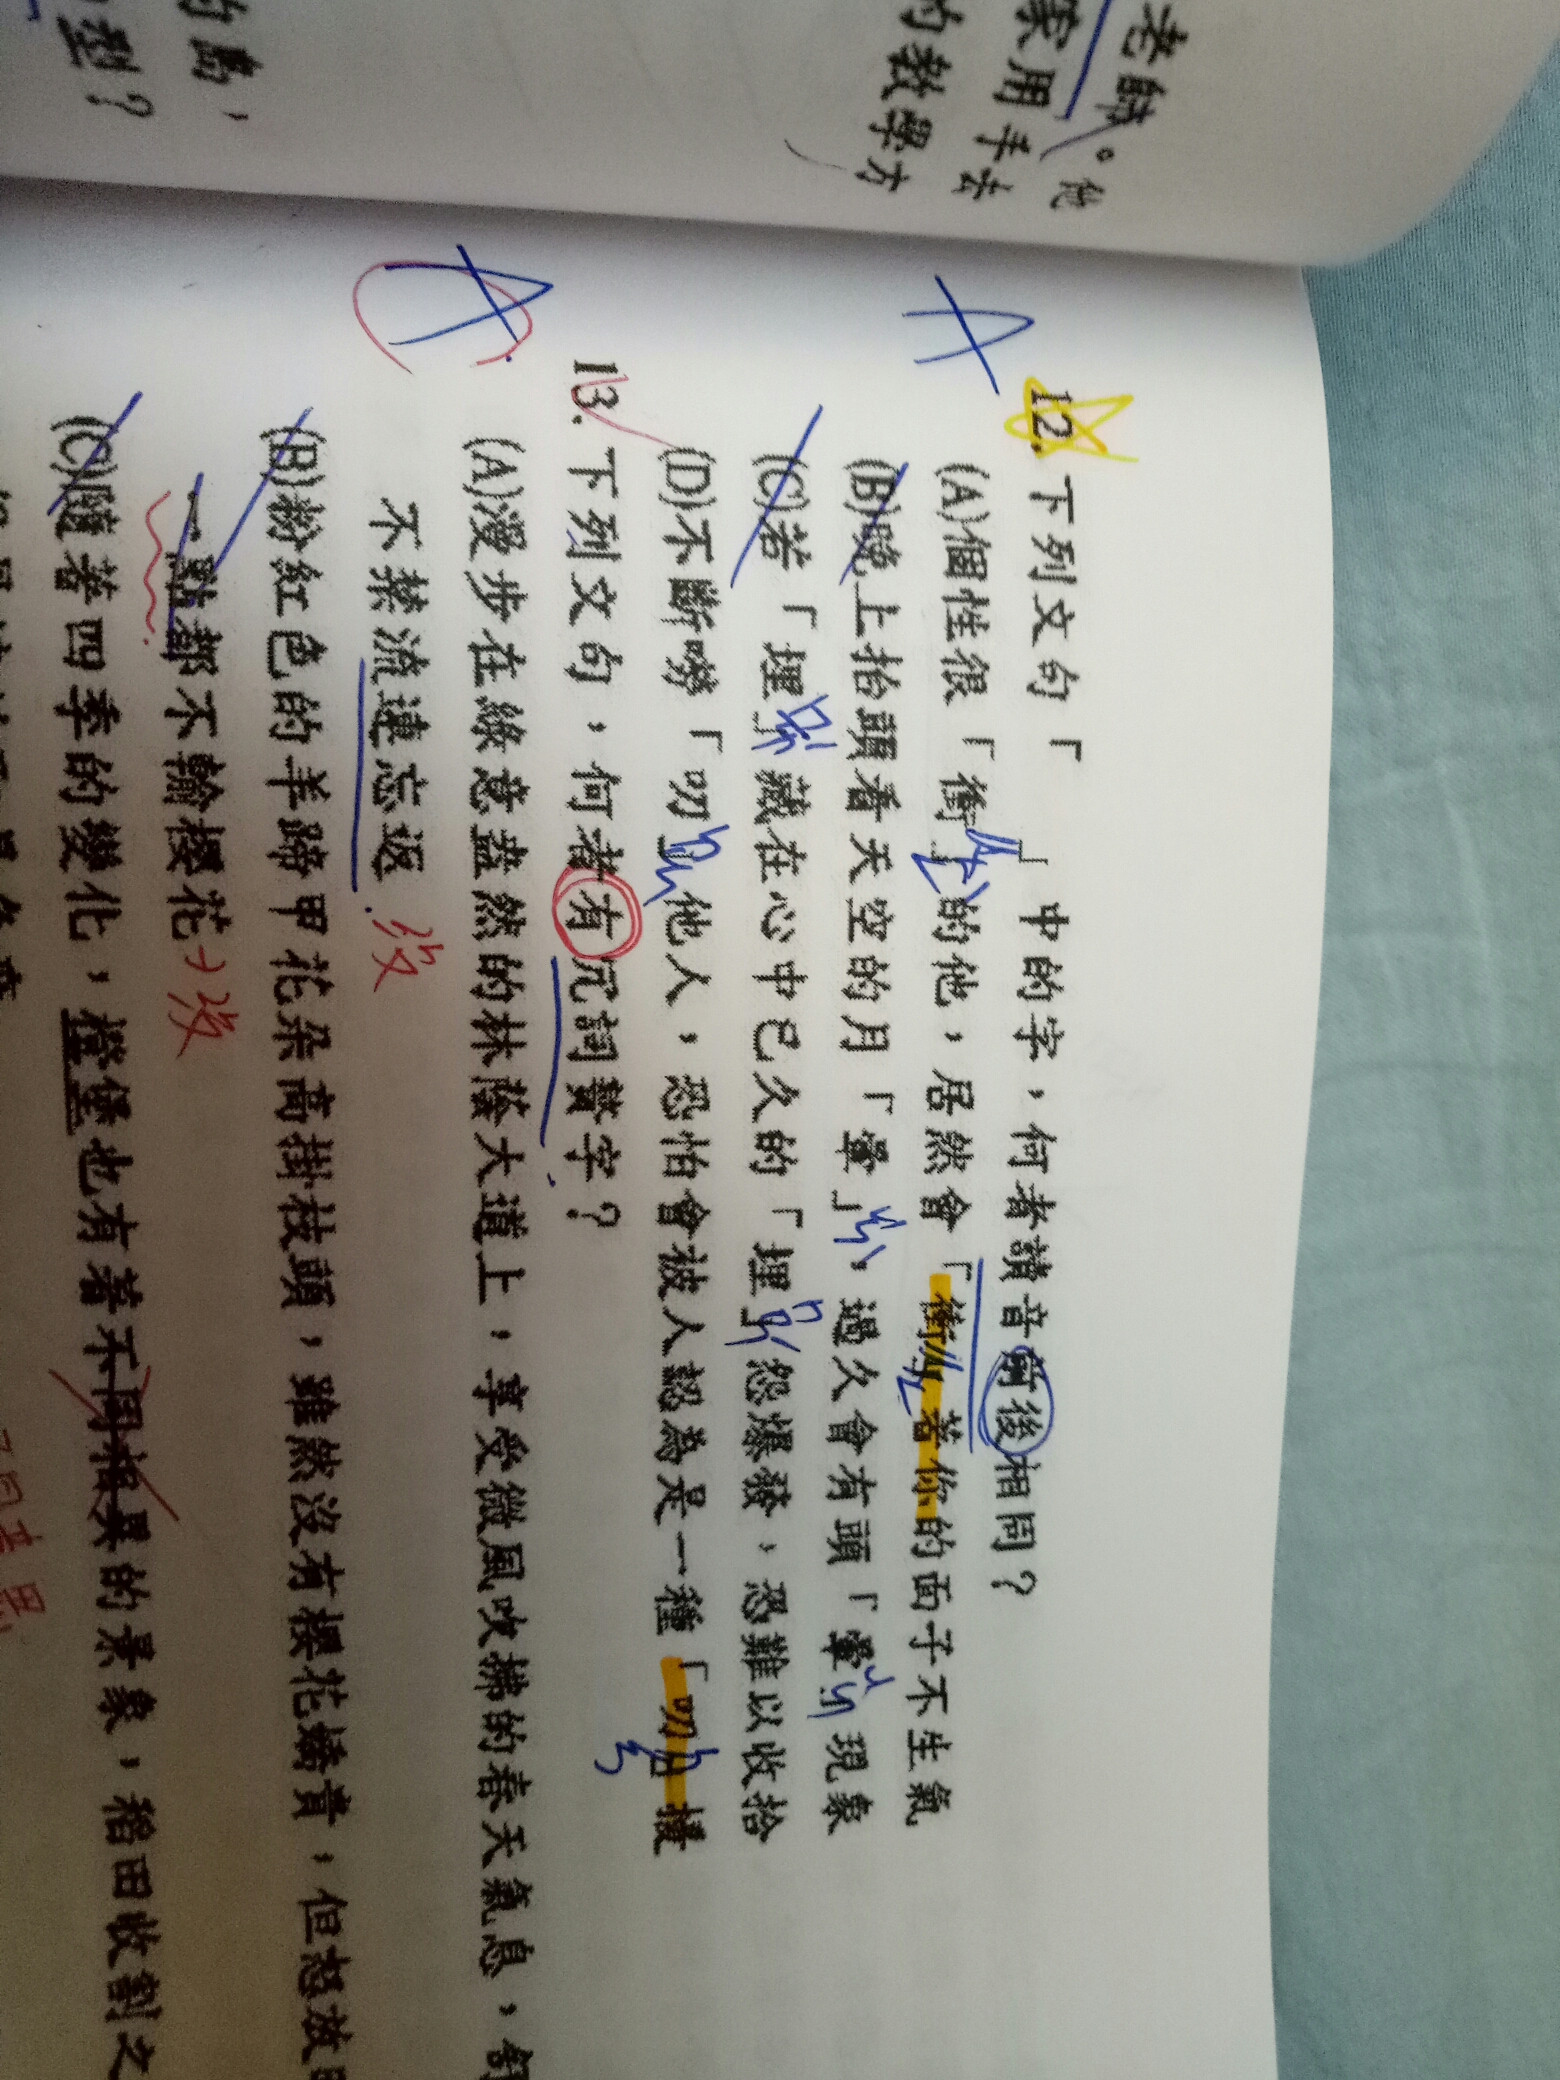 老師。他
案用手去
的教學方
的島，
型？
12.下列文句「 」中的字，何者讀音前後相同？
(A)個性很「衝」的他，居然會「衝」著你的面子不生氣
(B)晚上抬頭看天空的月「暈」，過久會有頭「暈」現象
(C)若「埋」藏在心中已久的「埋」怨爆發，恐難以收拾
(D)不斷嘮「叨」他人，恐怕會被人認為是一種「叨」擾
13.下列文句，何者有冗詞贅字？
(A)漫步在綠意盎然的林蔭大道上，享受微風吹拂的春天氣息，
不禁流連忘返 沒
(B)粉紅色的羊蹄甲花朵高掛枝頭，雖然沒有櫻花嬌貴，但怒放
一點都不輸櫻花→沒
(C)隨著四季的變化，橙堡也有著不同相異的景象，稻田收割之